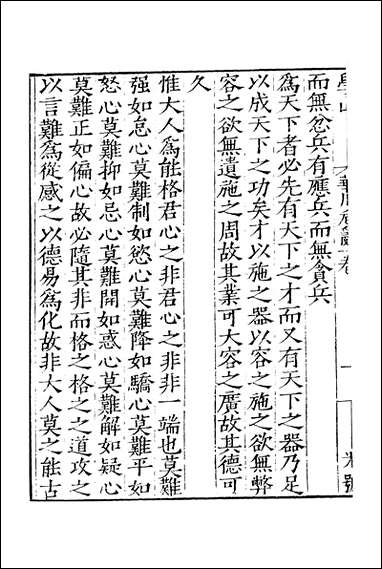 而無忿兵有應兵而無貪兵
爲天下者必先有天下之才而又有天下之器乃足
以成天下之功矣才以施之器以容之施之欲無弊
容之欲無遺施之周故其業可大容之廣故其德可
久
惟大人爲能格君心之非君心之非非一端也莫難
强如怠心莫難制如慾心莫難降如驕心莫難平如
怒心莫難抑如忌心莫難開如惑心莫難解如疑心
莫難正如偏心故必隨其非而格之格之之道攻之
以言難爲從感之以德易爲化故非大人莫之能古